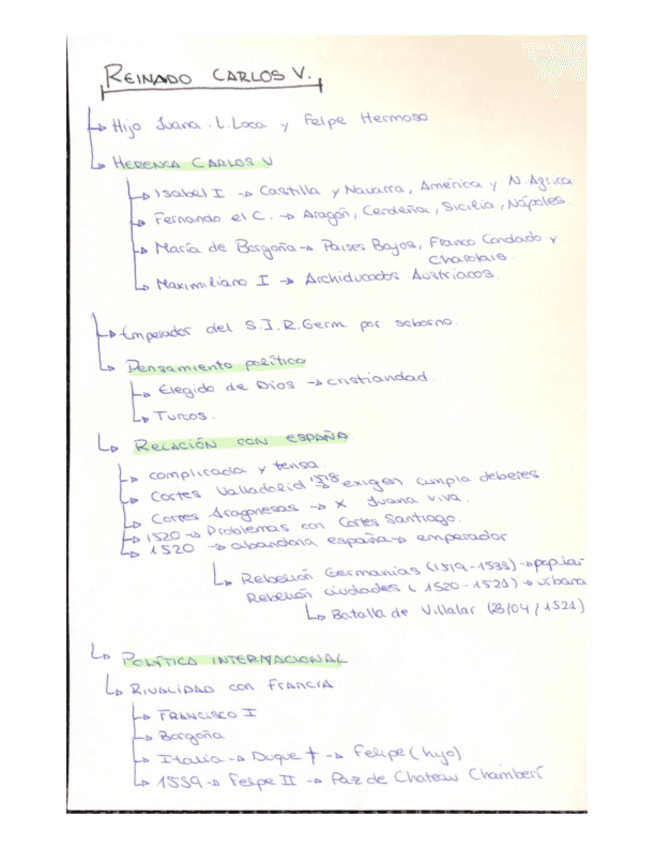 REINADO CARLOS V.
↳ Hijo Juana .L.Loca y Felpe Hermoso
↳ HERENCA CARLOS V
↳ Isabel I → Castilla y Navarra, América y N. Agrica
↳ Fernando el C. → Aragón, Cerdeña, Sicilia, Nápoles.
↳ María de Borgoña → Paises Bajos, Franco Condado y
Charolais.
↳ Maximiliano I → Archiducados Austriacos.
↳ Emperador del S.I.R.Germ. por soborno.
↳ Pensamiento político
↳ Elegido de Dios → cristiandad.
↳ Turcos.
↳ RELACIÓN CON ESPAÑA.
↳ complicada y tensa.
↳ Cortes Valladolid 1518 → exigen cumpla deberes.
↳ Cortes Aragonesas → X Juana viva.
↳ 1520 → Problemas con Cortes Santiago.
↳ 1520 → abandona españa → emperador
↳ Rebelión Germanias (1519-1533) → popular
Rebelión ciudades (1520-1521) → urbana
↳ Batalla de Villalar (23/04/1521)
↳ POLÍTICA INTERNACIONAL
↳ RIVALIDAD con FRANCIA
↳ FRANCISCO I
↳ Borgoña
↳ Italia → Duque † → Felipe (hijo)
↳ 1559 → Felpe II → Paz de Chateau Chamberí